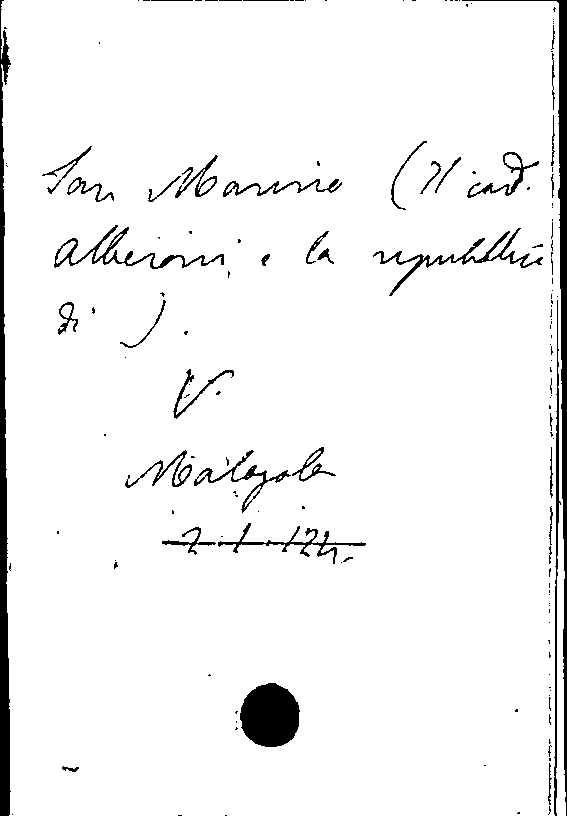 San Marino (Il card.
Alberoni e la repubblica
di ).
V.
Malagola
2. 1. 124.